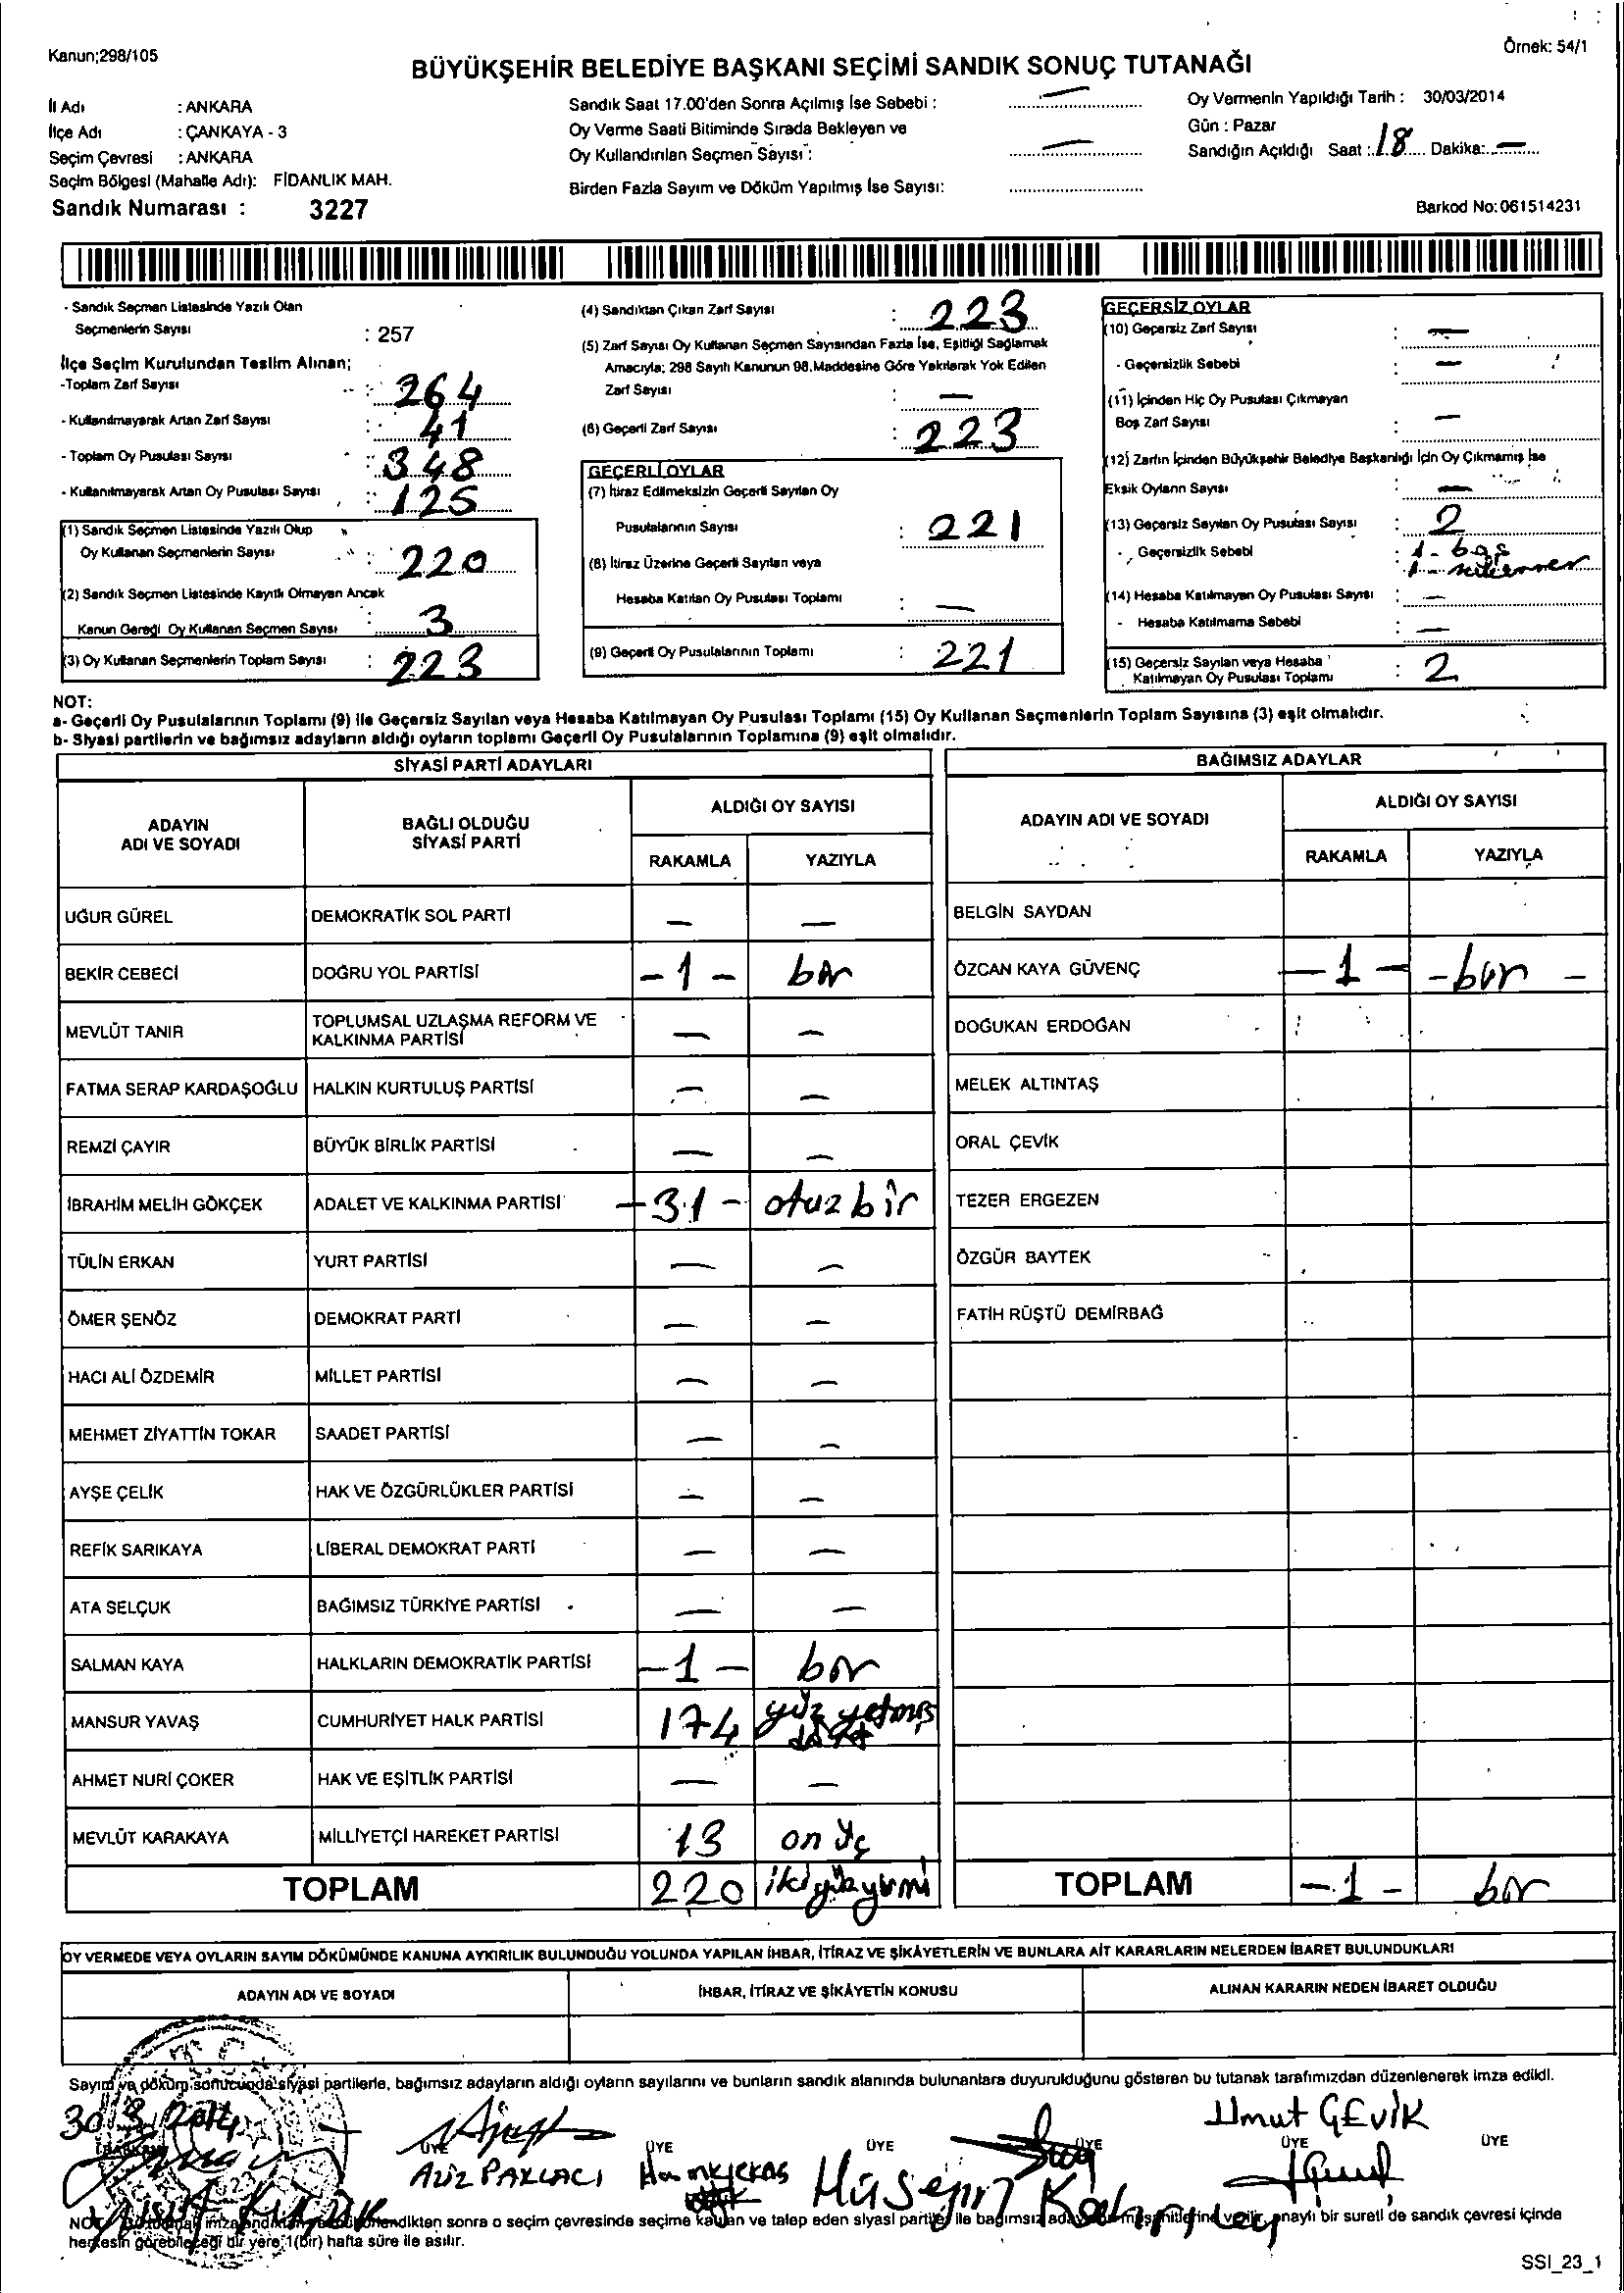 Kanun;298/105
Örnek: 54/1
BÜYÜKŞEHİR BELEDİYE BAŞKANI SEÇİMİ SANDIK SONUÇ TUTANAĞI
İl Adı : ANKARA
İlçe Adı : ÇANKAYA - 3
Seçim Çevresi : ANKARA
Seçim Bölgesi (Mahalle Adı): FİDANLIK MAH.
Sandık Numarası : 3227
Sandık Saat 17.00'den Sonra Açılmış İse Sebebi : —
Oy Verme Saati Bitiminde Sırada Bekleyen ve
Oy Kullandırılan Seçmen Sayısı : —
Birden Fazla Sayım ve Döküm Yapılmış İse Sayısı:
Oy Vermenin Yapıldığı Tarih : 30/03/2014
Gün : Pazar
Sandığın Açıldığı Saat : 18 Dakika: —
Barkod No:061514231
- Sandık Seçmen Listesinde Yazılı Olan
Seçmenlerin Sayısı : 257
İlçe Seçim Kurulundan Teslim Alınan;
-Toplam Zarf Sayısı : 264
- Kullanılmayarak Artan Zarf Sayısı : 41
- Toplam Oy Pusulası Sayısı : 348
- Kullanılmayarak Artan Oy Pusulası Sayısı : 125
(1) Sandık Seçmen Listesinde Yazılı Olup
Oy Kullanan Seçmenlerin Sayısı : 220
(2) Sandık Seçmen Listesinde Kayıtlı Olmayan Ancak
Kanun Gereği Oy Kullanan Seçmen Sayısı : 3
(3) Oy Kullanan Seçmenlerin Toplam Sayısı : 223
(4) Sandıktan Çıkan Zarf Sayısı : 223
(5) Zarf Sayısı Oy Kullanan Seçmen Sayısından Fazla İse, Eşitliği Sağlamak
Amacıyla; 298 Sayılı Kanunun 98.Maddesine Göre Yakılarak Yok Edilen
Zarf Sayısı : —
(6) Geçerli Zarf Sayısı : 223
GEÇERLİ OYLAR
(7) İtiraz Edilmeksizin Geçerli Sayılan Oy
Pusulalarının Sayısı : 221
(8) İtiraz Üzerine Geçerli Sayılan veya
Hesaba Katılan Oy Pusulası Toplamı : —
(9) Geçerli Oy Pusulalarının Toplamı : 221
GEÇERSİZ OYLAR
(10) Geçersiz Zarf Sayısı : —
- Geçersizlik Sebebi : —
(11) İçinden Hiç Oy Pusulası Çıkmayan
Boş Zarf Sayısı : —
(12) Zarfın İçinden Büyükşehir Belediye Başkanlığı İçin Oy Çıkmamış İse
Eksik Oyların Sayısı : —
(13) Geçersiz Sayılan Oy Pusulası Sayısı : 2
- Geçersizlik Sebebi : 1 - boş
1 -
(14) Hesaba Katılmayan Oy Pusulası Sayısı : —
- Hesaba Katılmama Sebebi : —
(15) Geçersiz Sayılan veya Hesaba
Katılmayan Oy Pusulası Toplamı : 2
NOT:
a- Geçerli Oy Pusulalarının Toplamı (9) ile Geçersiz Sayılan veya Hesaba Katılmayan Oy Pusulası Toplamı (15) Oy Kullanan Seçmenlerin Toplam Sayısına (3) eşit olmalıdır.
b- Siyasi partilerin ve bağımsız adayların aldığı oyların toplamı Geçerli Oy Pusulalarının Toplamına (9) eşit olmalıdır.
SİYASİ PARTİ ADAYLARI
ADAYIN ADI VE SOYADI BAĞLI OLDUĞU SİYASİ PARTİ ALDIĞI OY SAYISI
RAKAMLA YAZIYLA
UĞUR GÜREL DEMOKRATİK SOL PARTİ — —
BEKİR CEBECİ DOĞRU YOL PARTİSİ - 1 - bir
MEVLÜT TANIR TOPLUMSAL UZLAŞMA REFORM VE KALKINMA PARTİSİ — —
FATMA SERAP KARDAŞOĞLU HALKIN KURTULUŞ PARTİSİ — —
REMZİ ÇAYIR BÜYÜK BİRLİK PARTİSİ — —
İBRAHİM MELİH GÖKÇEK ADALET VE KALKINMA PARTİSİ - 31 - otuz bir
TÜLİN ERKAN YURT PARTİSİ — —
ÖMER ŞENÖZ DEMOKRAT PARTİ — —
HACI ALİ ÖZDEMİR MİLLET PARTİSİ — —
MEHMET ZİYATTİN TOKAR SAADET PARTİSİ — —
AYŞE ÇELİK HAK VE ÖZGÜRLÜKLER PARTİSİ — —
REFİK SARIKAYA LİBERAL DEMOKRAT PARTİ — —
ATA SELÇUK BAĞIMSIZ TÜRKİYE PARTİSİ — —
SALMAN KAYA HALKLARIN DEMOKRATİK PARTİSİ - 1 - bir
MANSUR YAVAŞ CUMHURİYET HALK PARTİSİ 174 yüz yetmiş dört
AHMET NURİ ÇOKER HAK VE EŞİTLİK PARTİSİ — —
MEVLÜT KARAKAYA MİLLİYETÇİ HAREKET PARTİSİ 13 on üç
TOPLAM 220 iki yüz yirmi
BAĞIMSIZ ADAYLAR
ADAYIN ADI VE SOYADI ALDIĞI OY SAYISI
RAKAMLA YAZIYLA
BELGİN SAYDAN
ÖZCAN KAYA GÜVENÇ - 1 - - bir -
DOĞUKAN ERDOĞAN
MELEK ALTINTAŞ
ORAL ÇEVİK
TEZER ERGEZEN
ÖZGÜR BAYTEK
FATİH RÜŞTÜ DEMİRBAĞ
TOPLAM - 1 - bir
OY VERMEDE VEYA OYLARIN SAYIM DÖKÜMÜNDE KANUNA AYKIRILIK BULUNDUĞU YOLUNDA YAPILAN İHBAR, İTİRAZ VE ŞİKÂYETLERİN VE BUNLARA AİT KARARLARIN NELERDEN İBARET BULUNDUKLARI
ADAYIN ADI VE SOYADI İHBAR, İTİRAZ VE ŞİKÂYETİN KONUSU ALINAN KARARIN NEDEN İBARET OLDUĞU
Sayım ve döküm sonucunda siyasi partilerle, bağımsız adayların aldığı oyların sayılarını ve bunların sandık alanında bulunanlara duyurulduğunu gösteren bu tutanak tarafımızdan düzenlenerek imza edildi.
30.3.2014
Umut ÇEVİK
BAŞKAN ÜYE ÜYE ÜYE ÜYE ÜYE ÜYE
Hüseyin
sonra o seçim çevresinde seçime katılan ve talep eden siyasi partiler ile bağımsız onaylı bir sureti de sandık çevresi içinde
herkesin görebileceği bir yere 1(bir) hafta süre ile asılır.
SSI_23_1